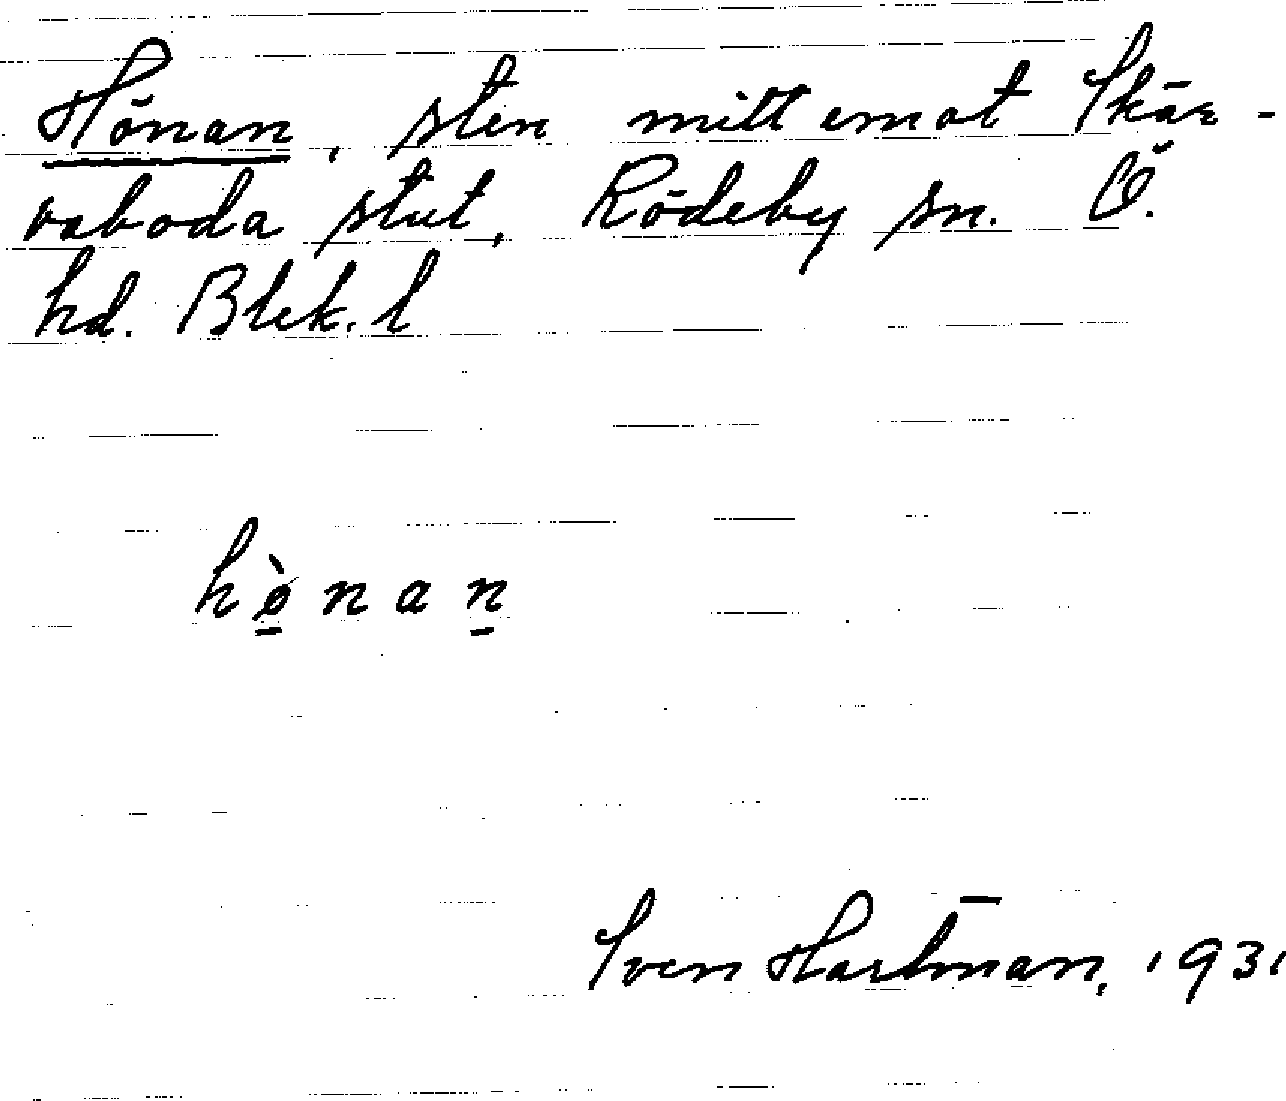 Hönan, sten mitt emot Skär-
vaboda slut, Rödeby sn. Ö.
hd. Blek. l
hø̀nan
Sven Hartman, 1931